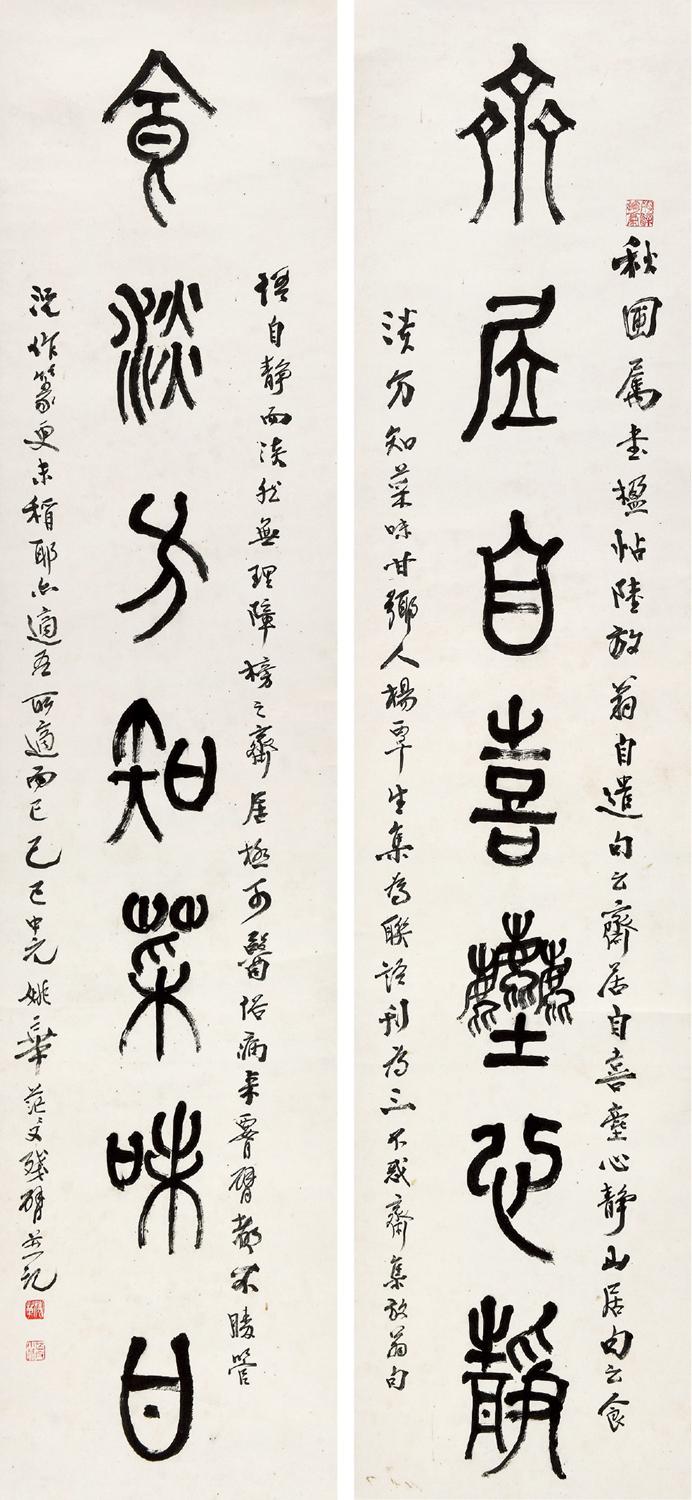 秋圃屬書楹帖陸放翁自遣句云齋居自喜塵心靜山居句云食
齊居自喜塵心靜
淡方知菜味甘鄉人楊覃生集為聯語刊為三不惑齋集放翁句
悟自靜而淡然無理障榜之齋居極可醫俗病來臂都不勝管
食淡方知菜味甘
況作篆更未稱耶亦適吾所適而已己巳中元姚華茫父殘臂並記